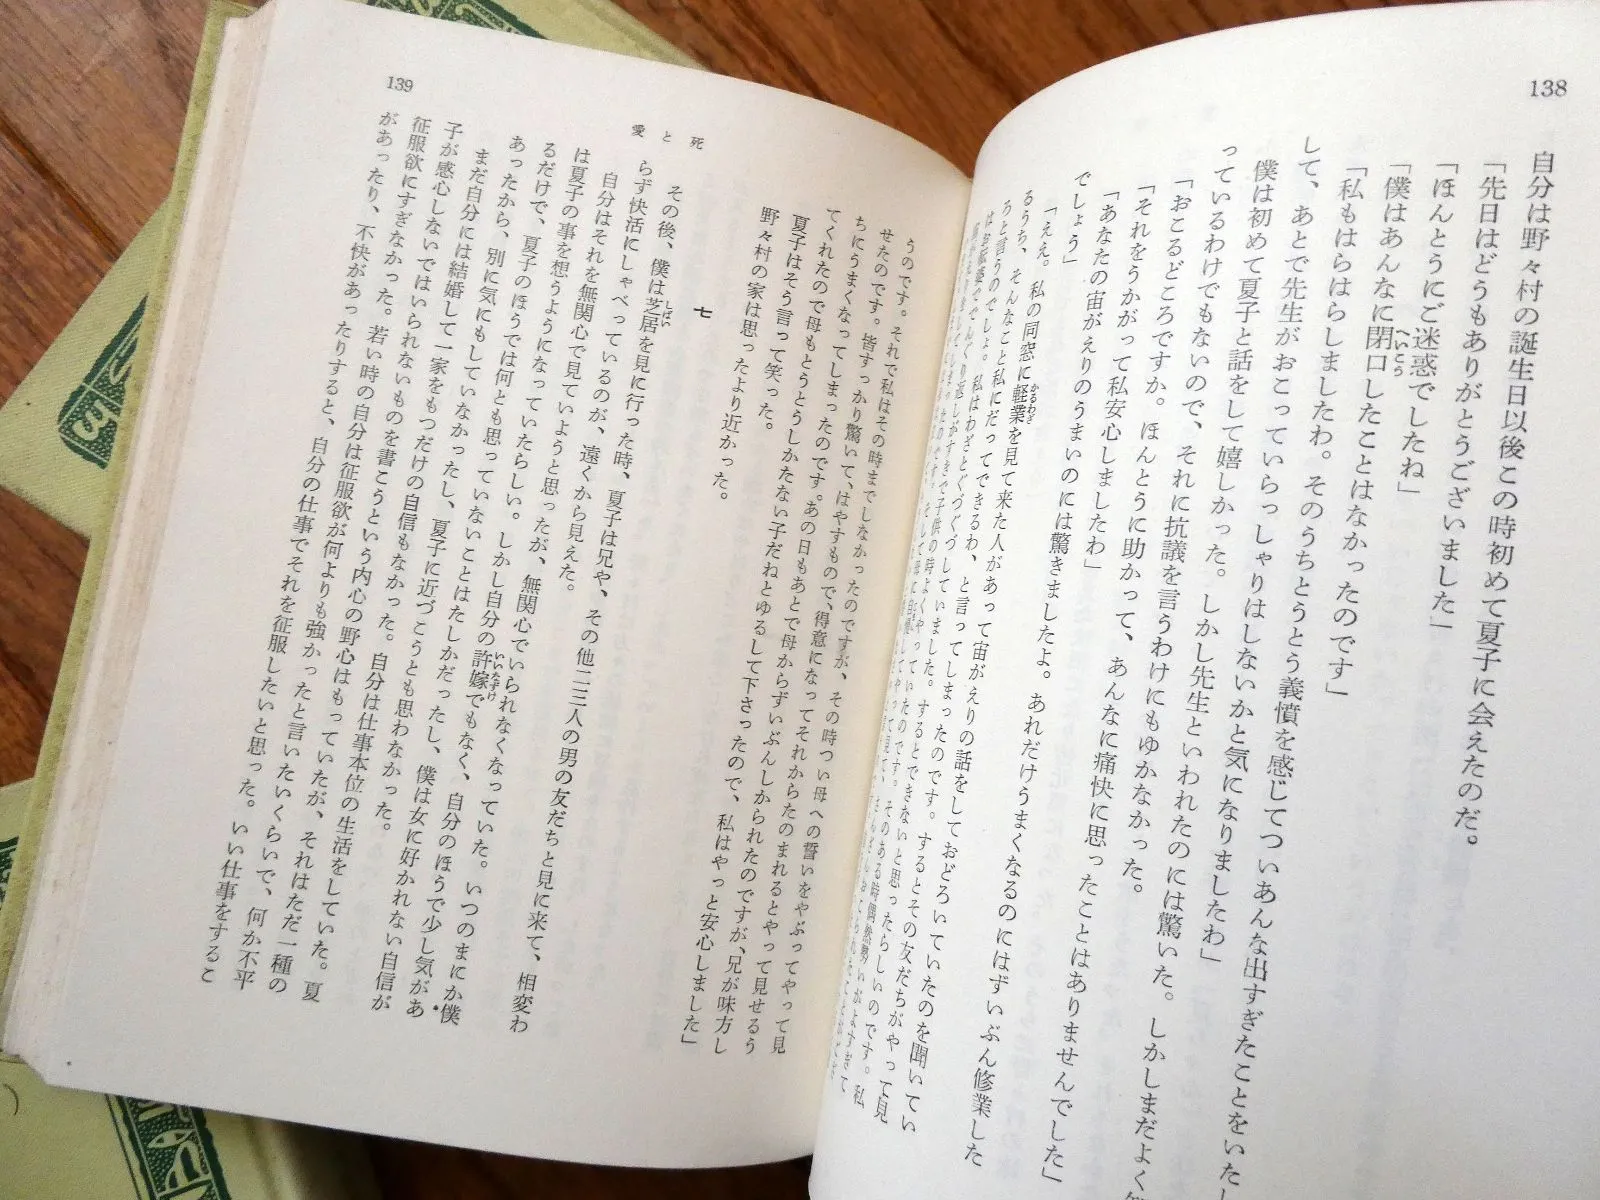 138
自分は野々村の誕生日以後この時初めて夏子に会えたのだ。
「先日はどうもありがとうございました」
「ほんとうにご迷惑でしたね」
「僕はあんなに閉口したことはなかったのです」
「私もはらはらしましたわ。そのうちとうとう義憤を感じてついあんな出すぎたことをいたし
して、あとで先生がおこっていらっしゃりはしないかと気になりましたわ」
僕は初めて夏子と話をして嬉しかった。しかし先生といわれたのには驚いた。しかしまだよく
っているわけでもないので、それに抗議を言うわけにもゆかなかった。
「おこるどころですか。ほんとうに助かって、あんなに痛快に思ったことはありませんでした」
「それをうかがって私安心しましたわ」
「あなたの宙がえりのうまいのには驚きましたよ。あれだけうまくなるのにはずいぶん修業した
でしょう」
「ええ。私の同窓に軽業を見て来た人があって宙がえりの話をしておどろいていたのを聞いてい
るうち、そんなこと私にだってできるわ、と言ってしまったのです。するとその友だちがやって見
ろと言うのでしょ。私はわざとぐづぐづしていました。するとできないと思ったらしいのです。私
はお転婆ででんぐり返しがすきで子供の時よくやっていたのです。そのある時偶然勢いがよすぎて
139
愛と死
うのです。それで私はその時までしなかったのですが、その時つい母への誓いをやぶってやって見
せたのです。皆すっかり驚いて、はやすもので、得意になってそれからたのまれるとやって見せるう
ちにうまくなってしまったのです。あの日もあとで母からずいぶんしかられたのですが、兄が味方し
てくれたので母もとうとうしかたない子だねとゆるして下さったので、私はやっと安心しました」
夏子はそう言って笑った。
野々村の家は思ったより近かった。
七
その後、僕は芝居を見に行った時、夏子は兄や、その他二三人の男の友だちと見に来て、相変わ
らず快活にしゃべっているのが、遠くから見えた。
自分はそれを無関心で見ていようと思ったが、無関心でいられなくなっていた。いつのまにか僕
は夏子の事を想うようになっていたらしい。しかし自分の許嫁でもなく、自分のほうで少し気があ
るだけで、夏子のほうでは何とも思っていないことはたしかだったし、僕は女に好かれない自信が
あったから、別に気にもしていなかったし、夏子に近づこうとも思わなかった。
まだ自分には結婚して一家をもつだけの自信もなかった。自分は仕事本位の生活をしていた。夏
子が感心しないではいられないものを書こうという内心の野心はもっていたが、それはただ一種の
征服欲にすぎなかった。若い時の自分は征服欲が何よりも強かったと言いたいくらいで、何か不平
があったり、不快があったりすると、自分の仕事でそれを征服したいと思った。いい仕事をするこ